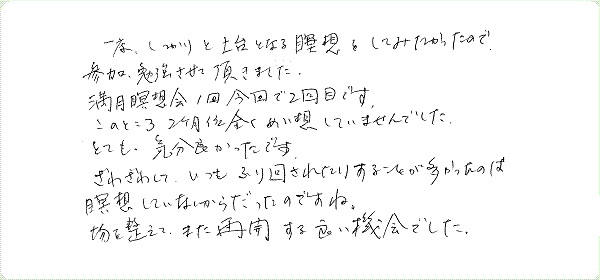 一度、しっかりと土台となる瞑想をしてみたかったので
参加、勉強させて頂きました。
満月瞑想会1回今回で2回目です。
このところ2ヶ月位全くめい想していませんでした。
とても、気分良かったです。
ざわざわして、いつもふり回されたりすることが多かったのは
瞑想していないからだったのですね。
場を整えて、また再開する良い機会でした。